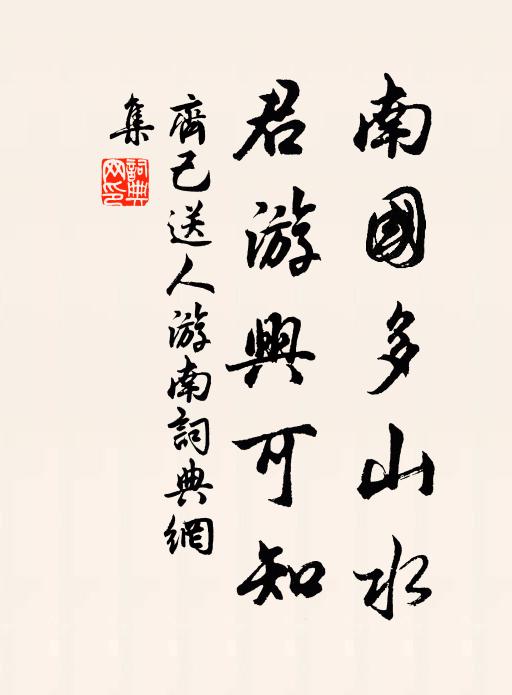 南國多山水
君游興可知
齊己送人游南詞典網
集
詞典
网印